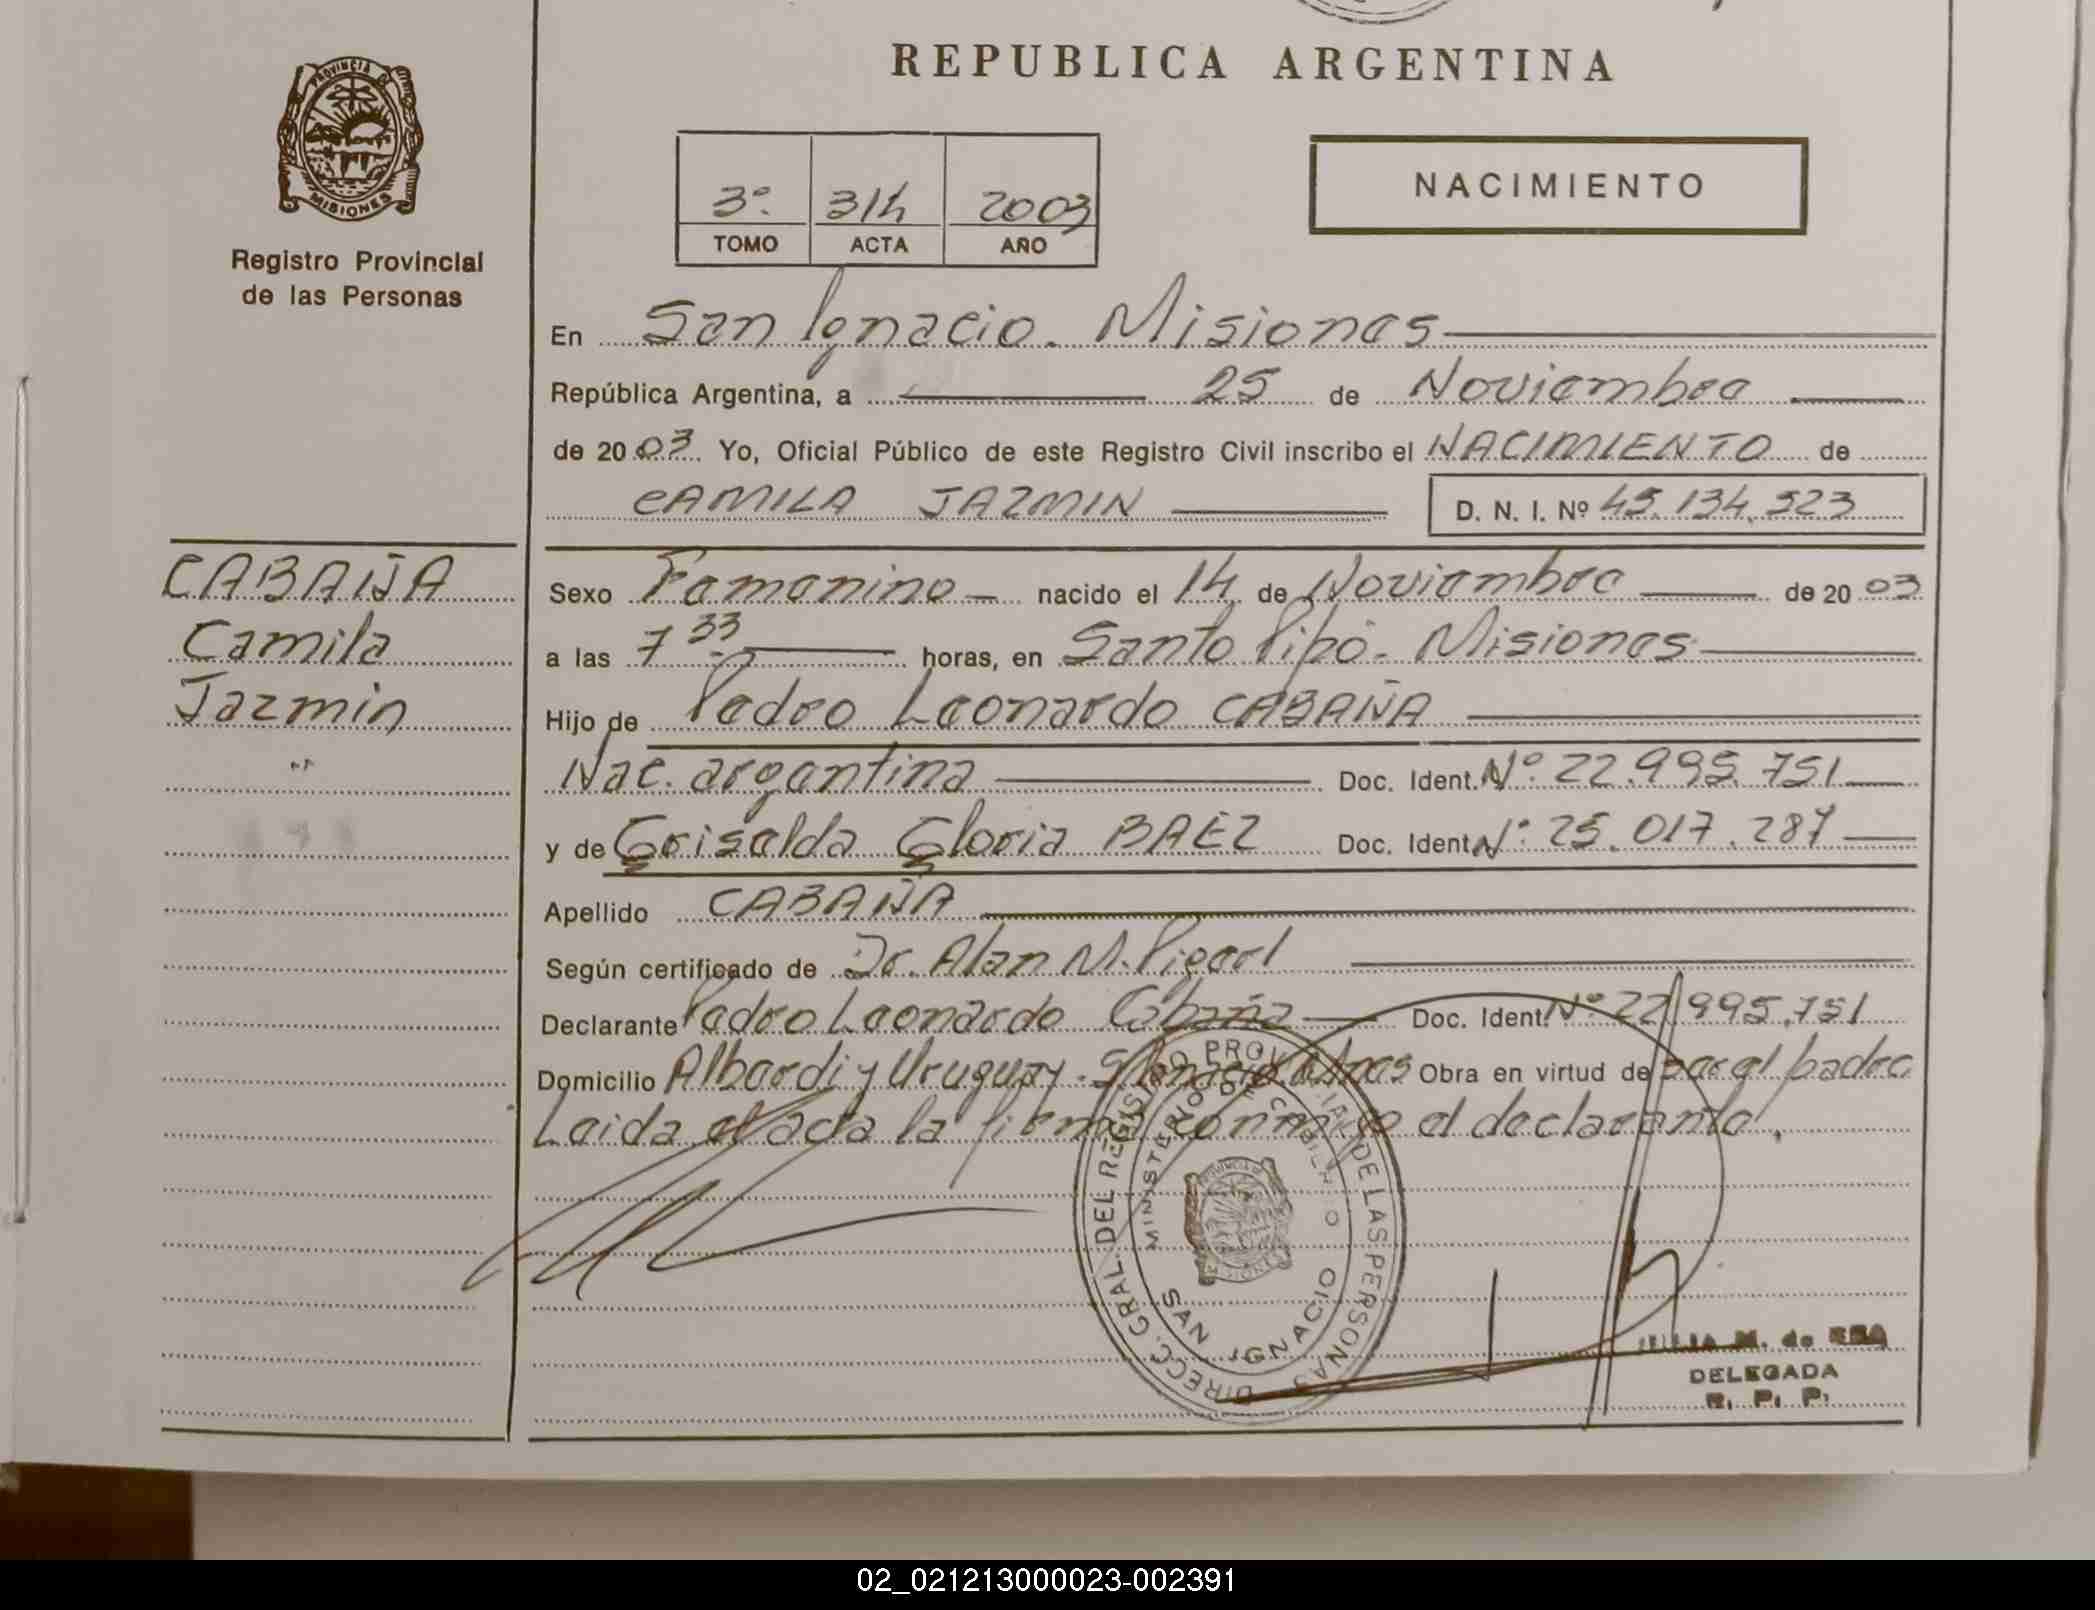 REPUBLICA ARGENTINA
PROVINCIA DE
MISIONES
Registro Provincial
de las Personas
3º 314 2003
TOMO ACTA AÑO
NACIMIENTO
En San Ignacio. Misiones
República Argentina, a 25 de Noviembre
de 2003 Yo, Oficial Público de este Registro Civil inscribo el NACIMIENTO de
CAMILA JAZMIN D. N. I. Nº 45.134.523
CABAÑA
Camila
Jazmin
Sexo Femenino nacido el 14 de Noviembre de 2003
a las 7 33 horas, en Santo Pipó. Misiones
Hijo de Pedro Leonardo CABAÑA
Nac. argentina Doc. Ident. Nº 22.995.751
y de Griselda Gloria BAEZ Doc. Ident. Nº 25.017.287
Apellido CABAÑA
Según certificado de Dr. Alan M.
Declarante Pedro Leonardo Cabaña Doc. Ident. Nº 22.995.751
Domicilio Alberdi y Uruguay. Obra en virtud de ser el padre
Leida el acta la firma conmigo el declarante.
DIRECC. GRAL. DEL REGISTRO PROVINCIAL DE LAS PERSONAS
MINISTERIO DE GOBIERNO
SAN IGNACIO
M. de
DELEGADA
R. P. P.
02_021213000023-002391